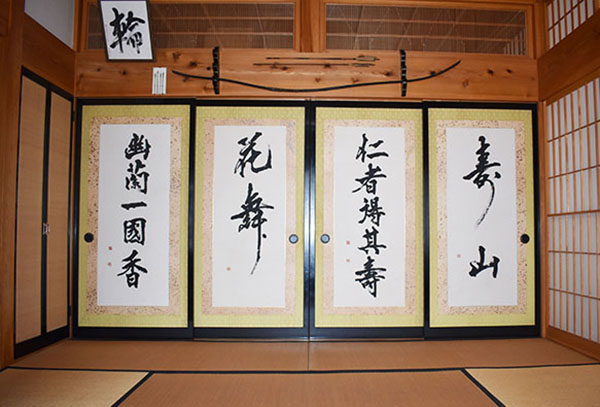 輪
寿山
仁者得其寿
花舞
幽蘭一國香